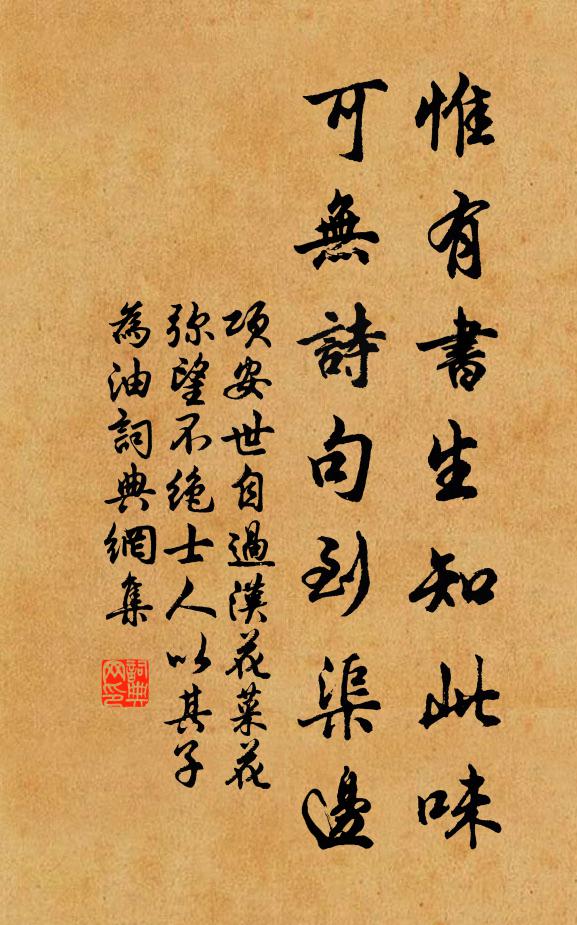 惟有書生知此味
可無詩句到渠邊
項安世自過漢花菜花
彌望不絕士人以其子
為油詞典網集
詞典網印